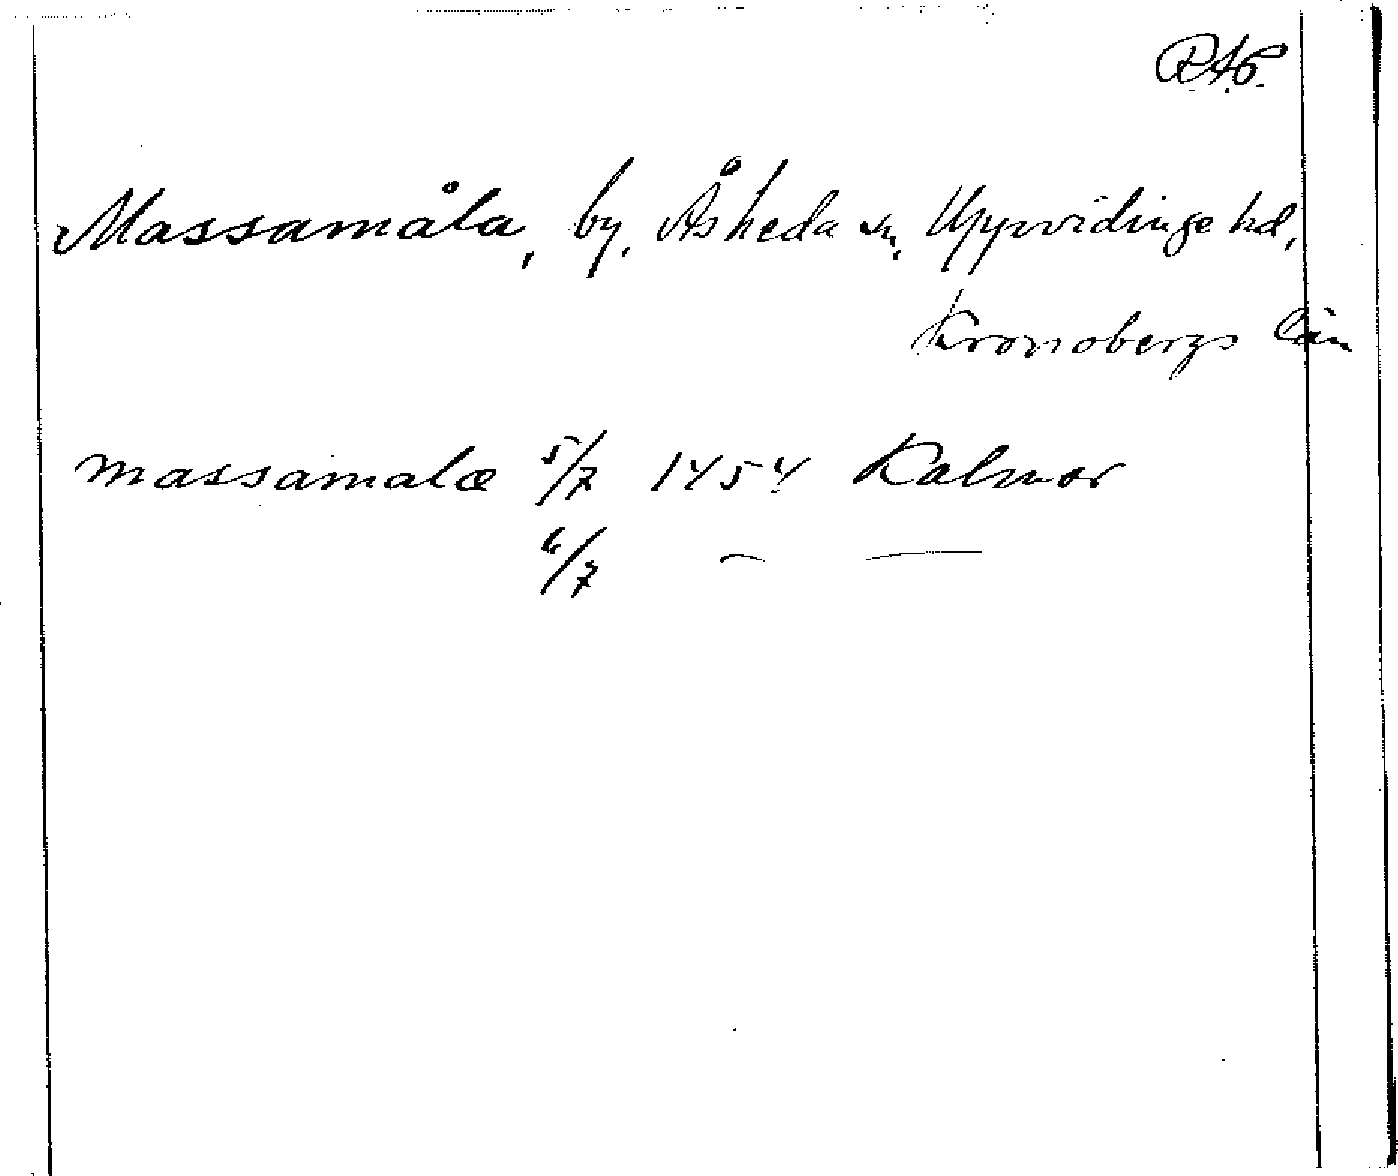 RAp.
Massamåla, by, Åsheda sn, Uppvidinge hd,
Kronobergs län
massamalæ 5/7 1454 Kalmar
6/7 — —